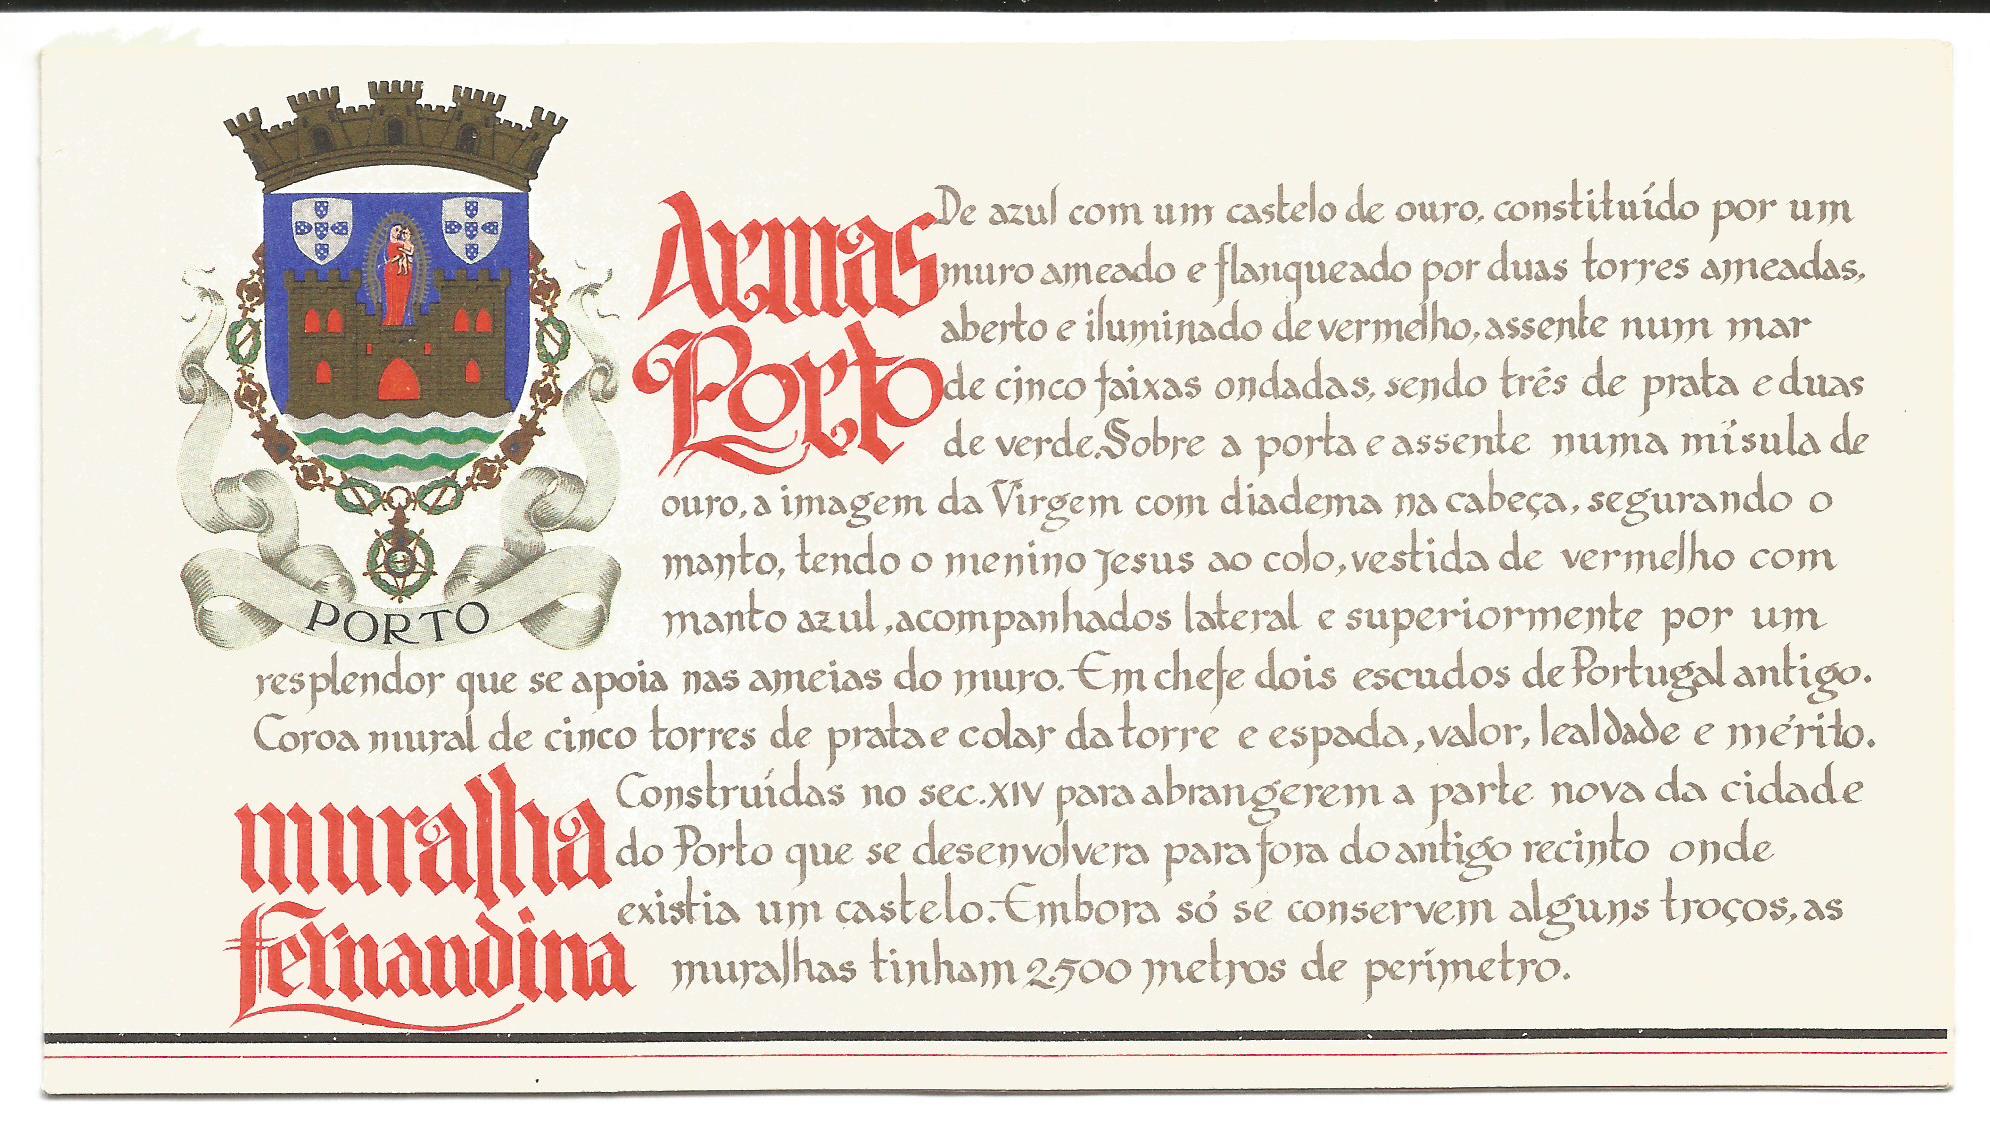 PORTO
Armas
Porto
De azul com um castelo de ouro, constituído por um
muro ameado e flanqueado por duas torres ameadas,
aberto e iluminado de vermelho, assente num mar
de cinco faixas ondadas, sendo três de prata e duas
de verde. Sobre a porta e assente numa mísula de
ouro, a imagem da Virgem com diadema na cabeça, segurando o
manto, tendo o menino Jesus ao colo, vestida de vermelho com
manto azul, acompanhados lateral e superiormente por um
resplendor que se apoia nas ameias do muro. Em chefe dois escudos de Portugal antigo.
Coroa mural de cinco torres de prata e colar da torre e espada, valor, lealdade e mérito.
muralha
Fernandina
Construídas no sec. XIV para abrangerem a parte nova da cidade
do Porto que se desenvolvera para fora do antigo recinto onde
existia um castelo. Embora só se conservem alguns troços, as
muralhas tinham 2.500 metros de perímetro.